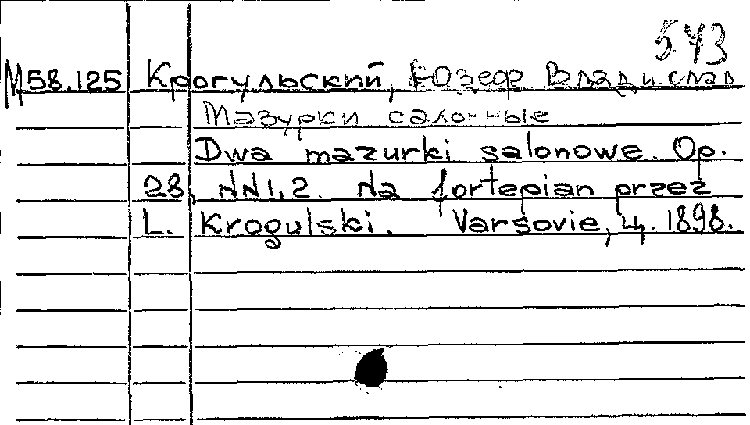 543
М58.125 Крогульский, Юзеф Владислав
Мазурки салонные
Dwa mazurki salonowe. Op.
28, NN1,2. Na fortepian przez
L. Krogulski. Varsovie, ц. 1898.